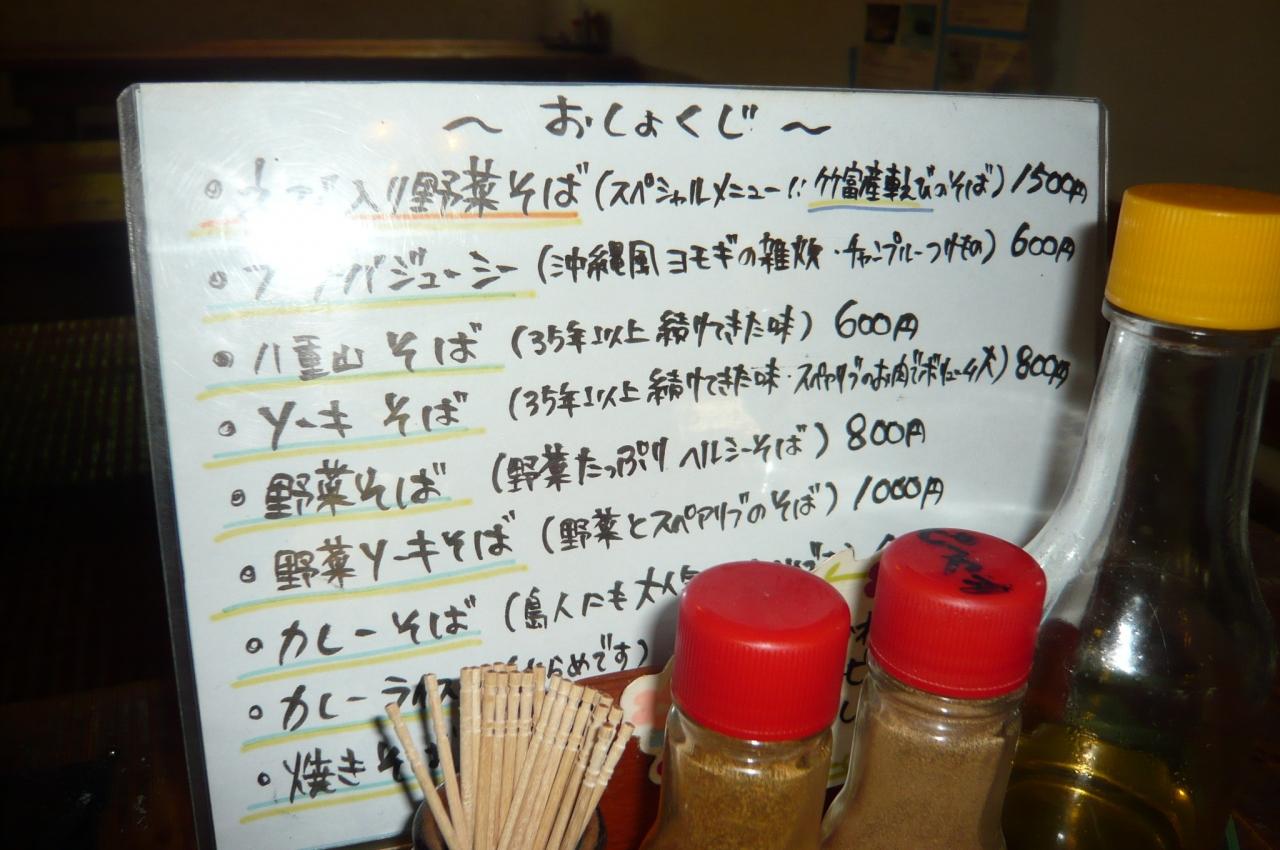 ～ おしょくじ ～
入り野菜そば (スペシャルメニュー!! 竹富産車えびのそば) 1500円
ジューシー (沖縄風 ヨモギの雑炊・チャンプルーつけもの) 600円
八重山そば (35年以上 続けてきた味) 600円
ソーキそば (35年以上 続けてきた味・スペアリブのお肉でボリューム大) 800円
野菜そば (野菜たっぷり ヘルシーそば) 800円
野菜ソーキそば (野菜とスペアリブのそば) 1000円
カレーそば (島人にも大人気
カレーライス
焼きそ